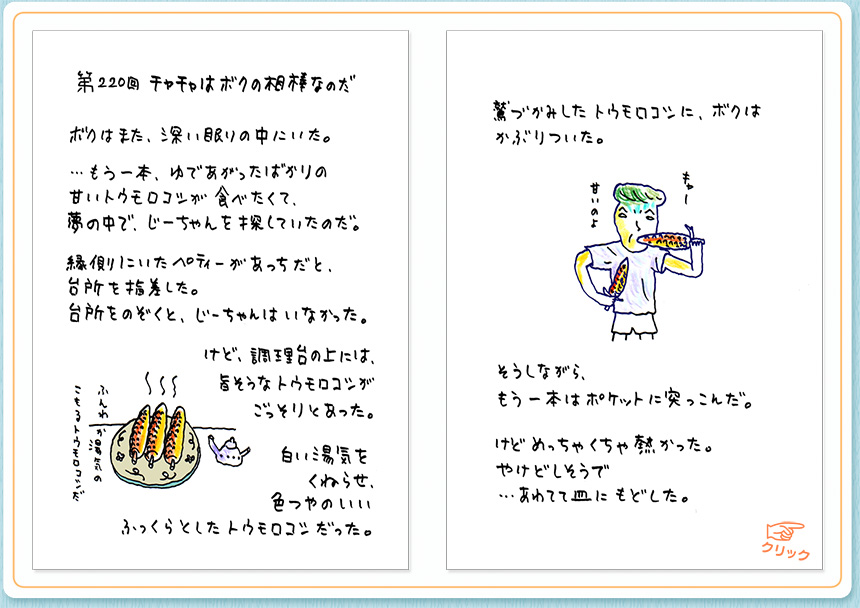 第220回 チャチャはボクの相棒なのだ
ボクはまた、深い眠りの中にいた。
…もう一本、ゆであがったばかりの
甘いトウモロコシが食べたくて、
夢の中で、じーちゃんを探していたのだ。
縁側にいたペティーがあっちだと、
台所を指差した。
台所をのぞくと、じーちゃんはいなかった。
けど、調理台の上には、
旨そうなトウモロコシが
ごっそりとあった。
ふんわか湯気の
こもるトウモロコシだ
白い湯気を
くねらせ、
色つやのいい
ふっくらとしたトウモロコシだった。
鷲づかみしたトウモロコシに、ボクは
かぶりついた。
もゅー
甘いのよ
そうしながら、
もう一本はポケットに突っこんだ。
けどめっちゃくちゃ熱かった。
やけどしそうで
…あわてて皿にもどした。
クリック